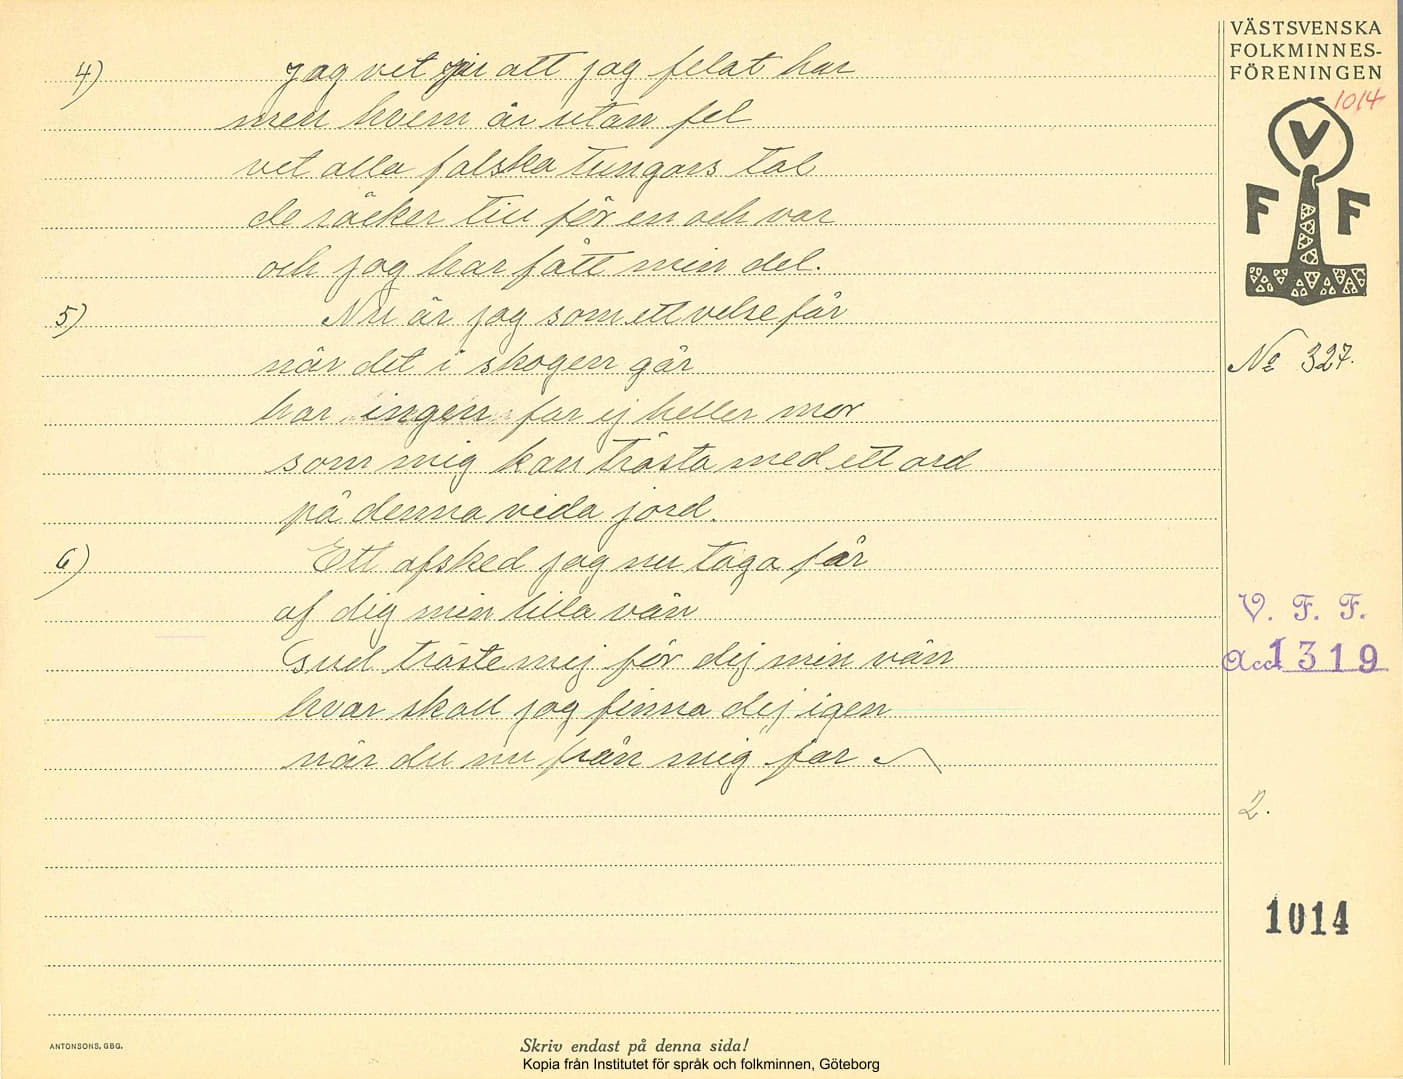 VÄSTSVENSKA
FOLKMINNES-
FÖRENINGEN
1014
V
F F
4) Jag vet jär att jag felat har
men hvem är utan fel
vet alla falska tungors tal
de räcker till för en och var
och jag har fått min del.
5) Nu är jag som ett velse får
när det i skogen går
har ingen far ej heller mor
som mig kan trösta med ett ord
på denna vida jord.
6) Ett afsked jag nu taga får
af dig min lilla vän
Gud tröste mej för dej min vän
hvar skall jag finna dej igen
når du nu från mig far
No 327.
V. F. F.
Acc. 1319
2.
1014
ANTONSONS, GBG.
Skriv endast på denna sida!
Kopia från Institutet för språk och folkminnen, Göteborg